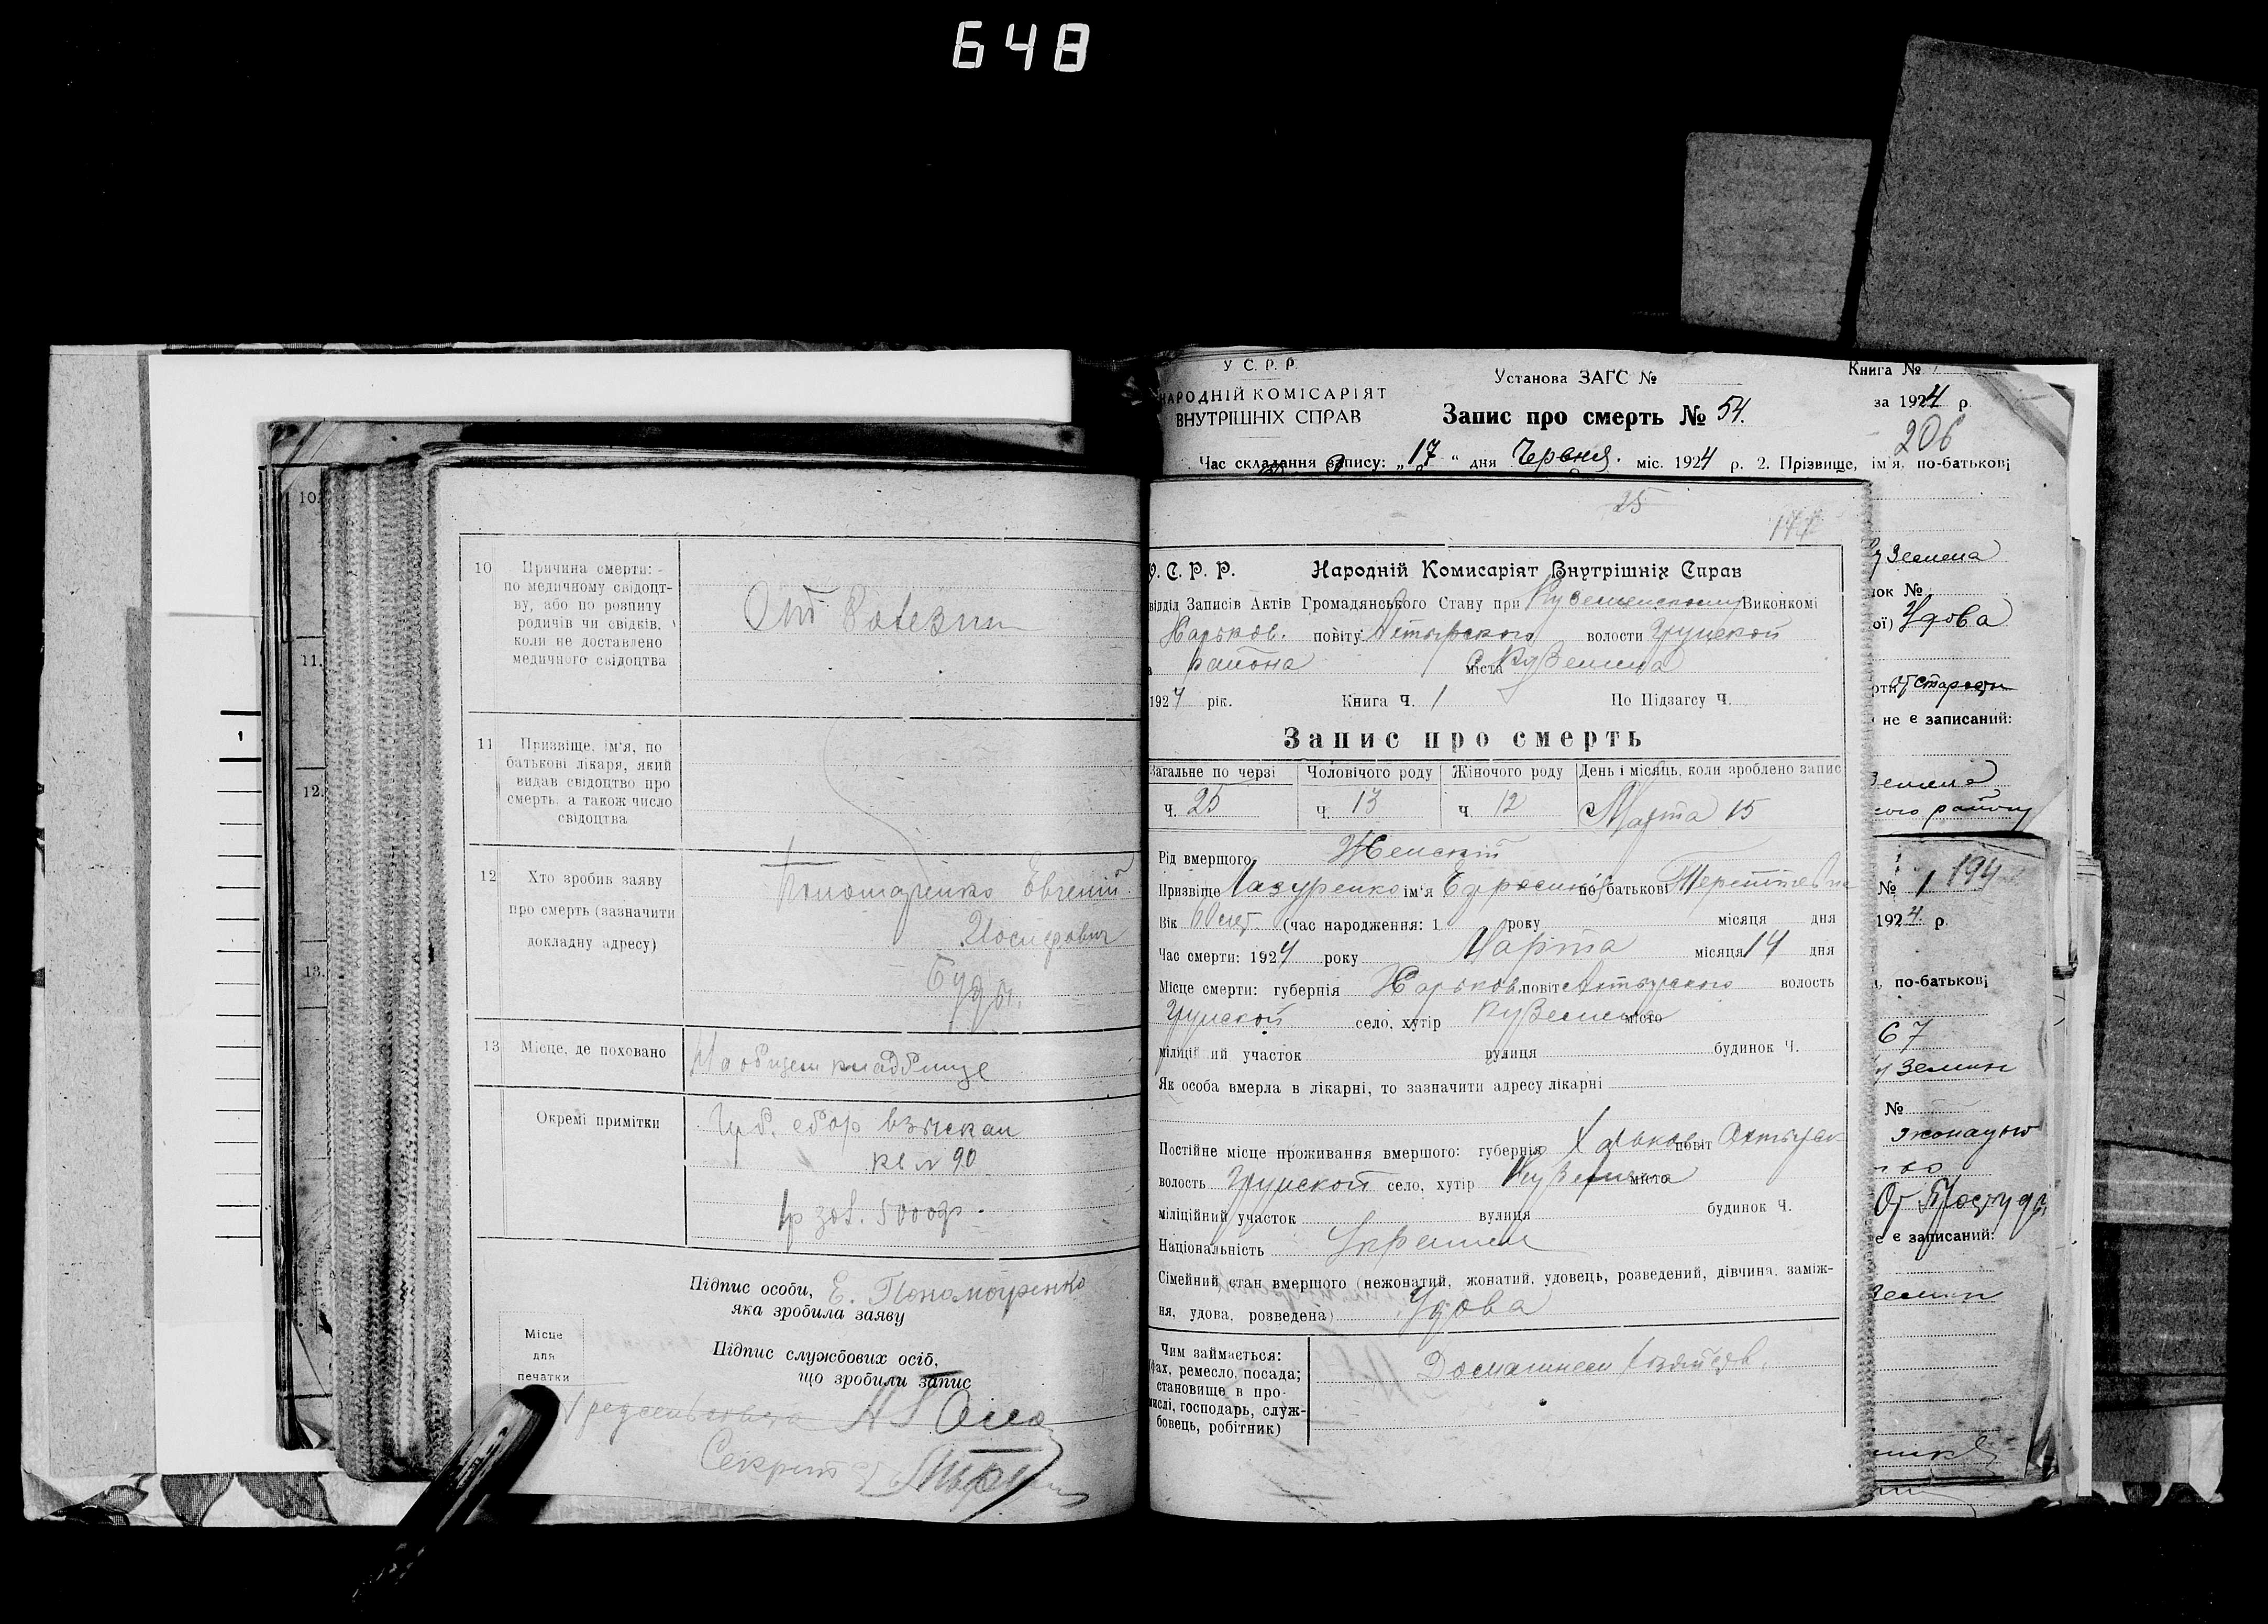 648
10
Причина смерти: -
по медичному свідоцт-
ву, або по розпиту
родичів чи свідків,
коли не доставлено
медичного свідоцтва
Отъ болезни
11
Призвіще, ім'я, по
батькові лікаря, який
видав свідоцтво про
смерть, а також число
свідоцтва
12
Хто зробив заяву
про смерть (зазначити
докладну адресу)
Пономаренко Евгений
Иосифович
Буды.
13
Місце, де поховано
На общем кладбище
Окремі примітки
Губ. сбор взыскан
кв № 90
1р зол. 5000р.
Підпис особи, Е. Пономаренко
яка зробила заяву
Місце
для
печатки
Підпис службових осіб,
що зробили запис
Секрет
10.
11.
12.
13.
1
У С. Р. Р.
НАРОДНІЙ КОМІСАРІЯТ
ВНУТРІШНІХ СПРАВ
Установа ЗАГС №
Книга №
Запис про смерть № 54.
за 1924 р.
206
Час складання запису: „17“ дня Червня. міс. 1924 р. 2. Прізвище, ім'я, по-батькові
25
У. С. Р. Р. Народній Комисаріят Внутрішніх Справ
відділ Записів Актів Громадянського Стану при Куземенскому Виконкомі
Харьков. повіту Ахтырского волости Грунской
района міста Куземина
1924 рік. Книга Ч. 1 По Підзагсу Ч.
Запис про смерть
Загальне по черзі Чоловічого роду Жіночого роду День і місяць, коли зроблено запис
ч. 25 ч. 13 ч. 12 Марта 15
Рід вмершого Женский
Призвіще Лазуренко ім'я Ефросиния по батькові Терентьевна
Вік 60 лет (час народження: 1 року місяця дня
Час смерти: 1924 року Марта місяця 14 дня
Місце смерти: губернія Харьков. повіт Ахтырского волость
Грунской село, хутір Куземина місто
міліційний участок вулиця будинок Ч.
Як особа вмерла в лікарні, то зазначити адресу лікарні
Постійне місце проживання вмершого: губернія Харьков. повіт Ахтырск
волость Грунской село, хутір Куземина місто
міліційний участок вулиця будинок Ч.
Національність
Сімейний стан вмершого (нежонатий, жонатий, удовець, розведений, дівчина, заміж-
ня, удова, розведена) Удова
Чим займається:
фах, ремесло, посада;
становище в про-
мислі, господарь, служ-
бовець, робітник)
Домашнем хозяйств.
уземена
нок №
ої) Удова
рти От старости
не є записаний:
земена
ого району
194
№ 1
1924 р.
, по-батькові
67
уземин
№
От Простуды
е є записаний:
земин